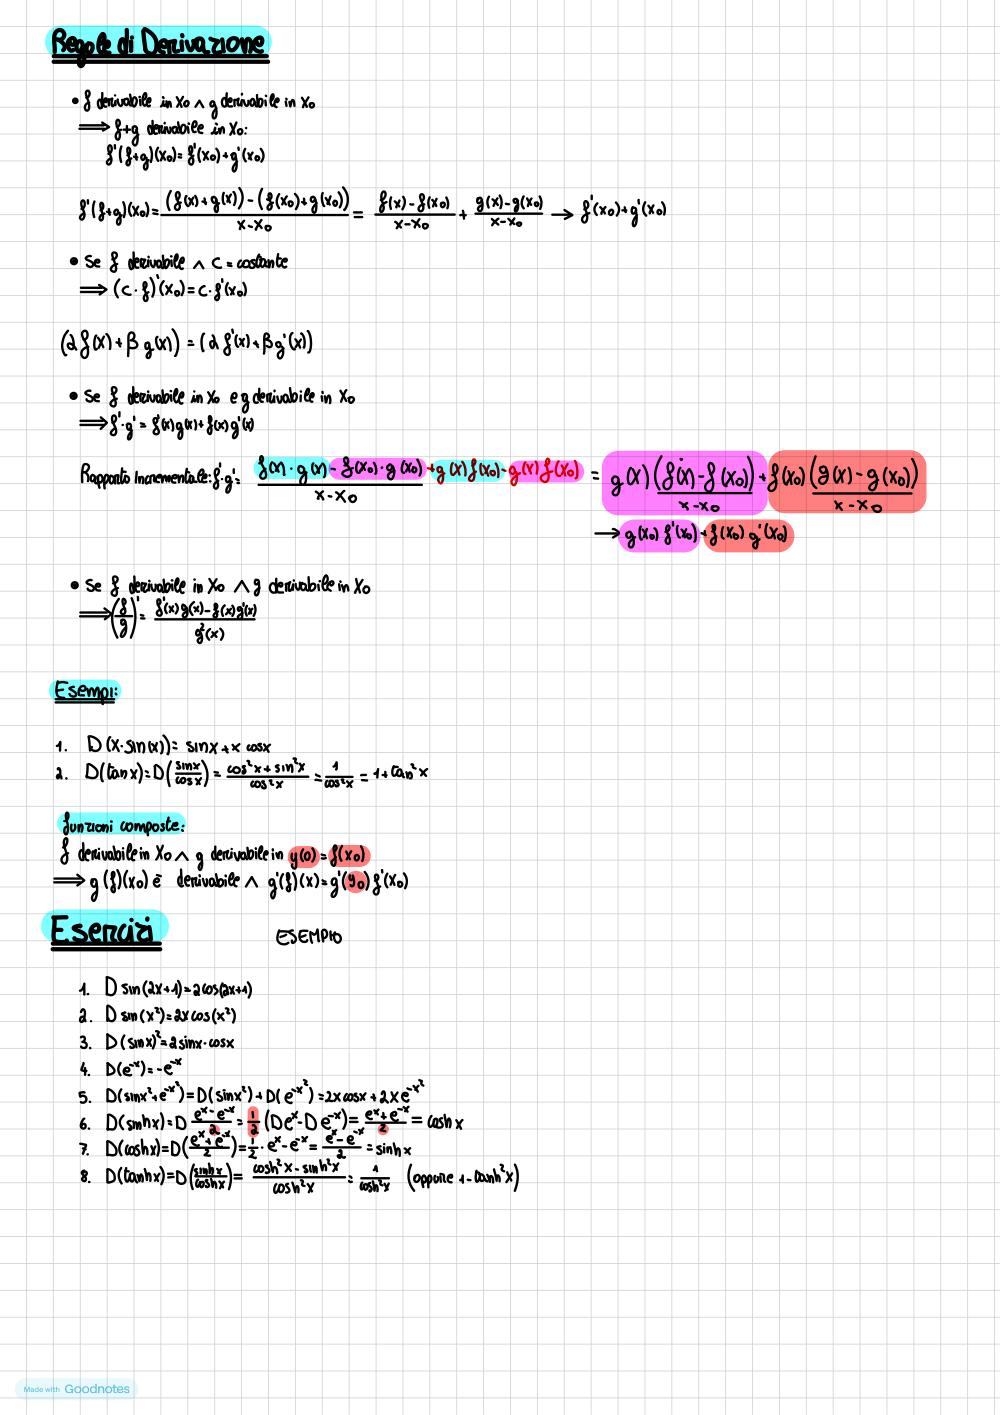 Regole di Derivazione
• f derivabile in x₀ ∧ g derivabile in x₀
⟹ f+g derivabile in x₀:
f'(f+g)(x₀)= f'(x₀)+g'(x₀)
f'(f+g)(x₀)= ((f(x)+g(x))-(f(x₀)+g(x₀)))/(x-x₀) = (f(x)-f(x₀))/(x-x₀) + (g(x)-g(x₀))/(x-x₀) → f'(x₀)+g'(x₀)
• Se f derivabile ∧ c = costante
⟹ (c·f)'(x₀)=c·f'(x₀)
(α f(x)+β g(x)) = (α f'(x)+β g'(x))
• Se f derivabile in x₀ e g derivabile in x₀
⟹ f'·g' = f'(x)g(x)+f(x)g'(x)
Rapporto Incrementale: f'·g'= (f(x)·g(x)-f(x₀)·g(x₀)+g(x)f(x₀)-g(x)f(x₀))/(x-x₀) = g(x)(f(x)-f(x₀))/(x-x₀) + f(x₀)(g(x)-g(x₀))/(x-x₀)
→ g(x₀)f'(x₀)+f(x₀)g'(x₀)
• Se f derivabile in x₀ ∧ g derivabile in x₀
⟹ (f/g)' = (f'(x)g(x)-f(x)g'(x))/g²(x)
Esempi:
1. D(x·sin(x))= sinx+x cosx
2. D(tanx)=D(sinx/cosx) = (cos²x+sin²x)/cos²x = 1/cos²x = 1+tan²x
funzioni composte:
f derivabile in x₀ ∧ g derivabile in y(0)=f(x₀)
⟹ g(f)(x₀) è derivabile ∧ g'(f)(x)=g'(y₀)f'(x₀)
Esercizi ESEMPIO
1. D sin(2x+1)=2cos(2x+1)
2. D sin(x²)=2xcos(x²)
3. D(sinx)²=2sinx·cosx
4. D(e⁻ˣ)=-e⁻ˣ
5. D(sinx²+e^-x²)=D(sinx²)+D(e^-x²)=2xcosx+2xe^-x²
6. D(sinhx)=D (eˣ-e⁻ˣ)/2 = 1/2 (Deˣ-De⁻ˣ)= (eˣ+e⁻ˣ)/2 = coshx
7. D(coshx)=D((eˣ+e⁻ˣ)/2)=1/2·eˣ-e⁻ˣ= (eˣ-e⁻ˣ)/2 = sinhx
8. D(tanhx)=D(sinhx/coshx)= (cosh²x-sinh²x)/cosh²x = 1/cosh²x (oppure 1-tanh²x)
Made with Goodnotes